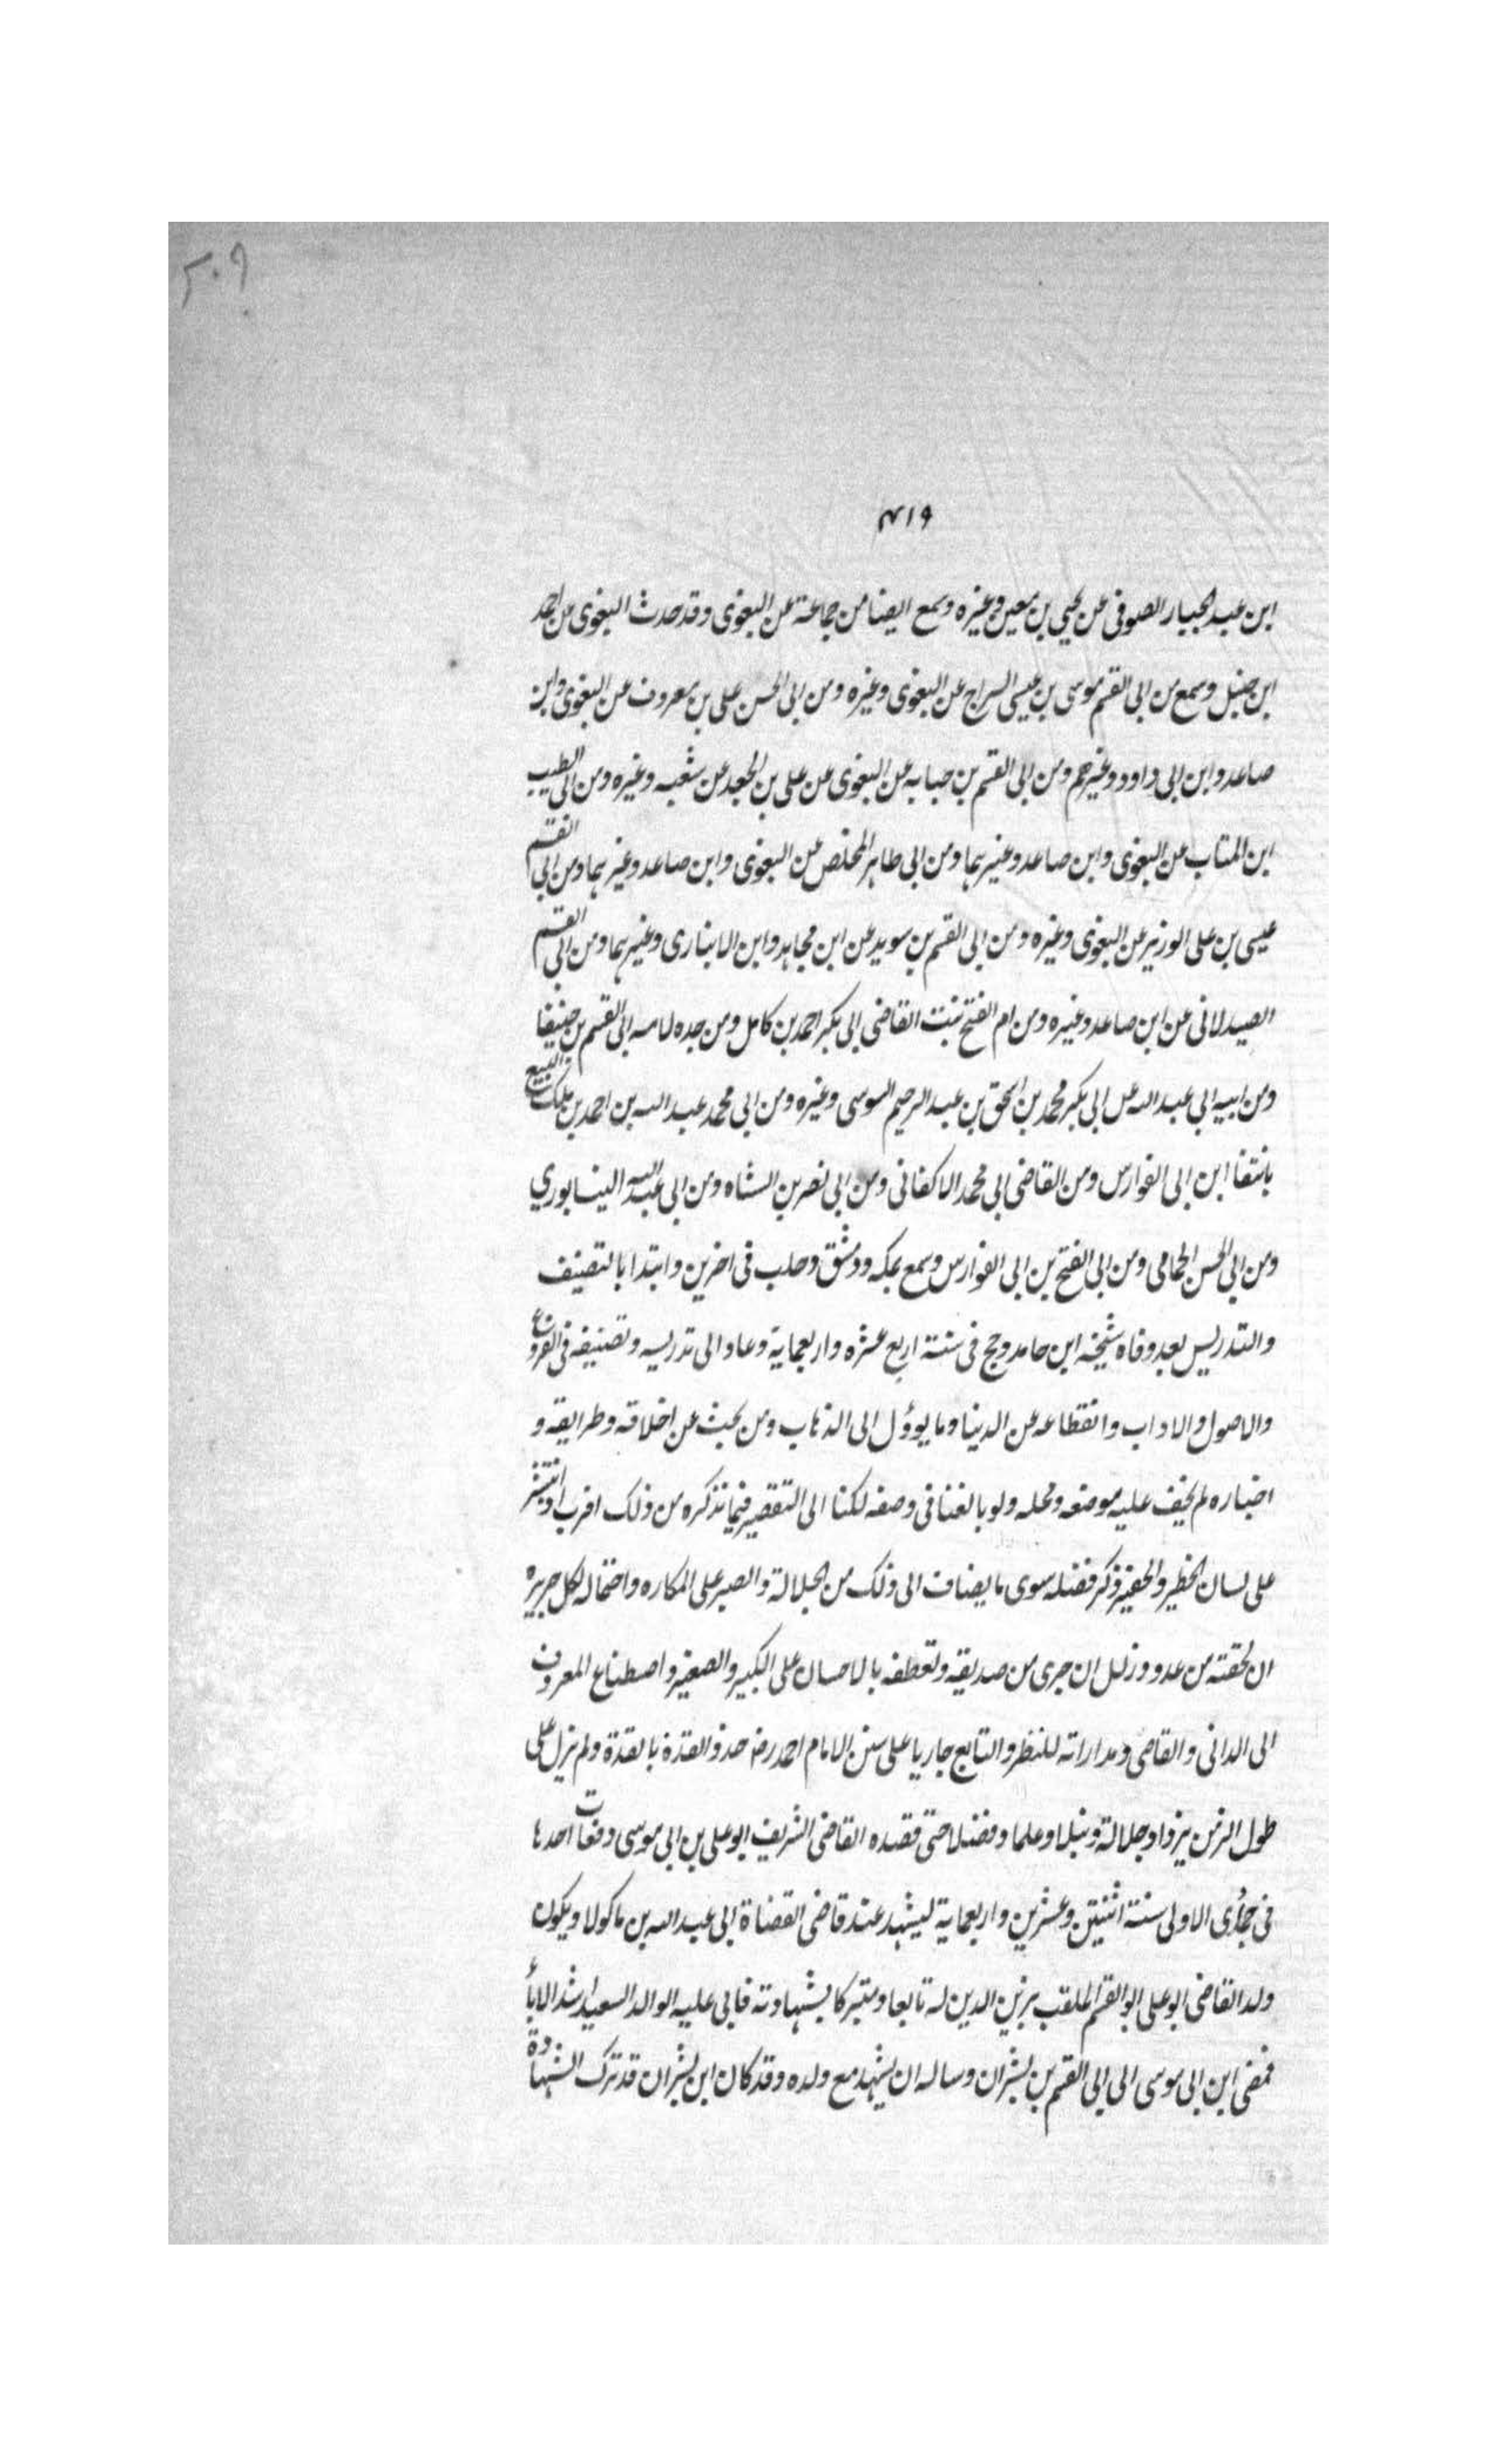 ٢٠٩
٤١٩
ابن عبد الجبار الصوفى عن يحيى بن معين وغيره وسمع ايضا من جماعة عن البغوى وقد حدث البغوى عن احمد
ابن حنبل وسمع من ابى القسم موسى بن عيسى السراج عن البغوى وغيره ومن ابى الحسن على بن معروف عن البغوى وابن
صاعد وابن ابى داود وغيرهم ومن ابى القسم بن حبابه عن البغوى عن على بن الجعد عن شعبه وغيره ومن ابى الطيب
ابن المنتاب عن البغوى وابن صاعد وغيرهما ومن ابى طاهر المخلص عن البغوى وابن صاعد وغيرهما ومن ابى القسم
عيسى بن على الوزير عن البغوى وغيره ومن ابى القسم بن سويد عن ابن مجاهد وابن الانبارى وغيرهما ومن ابى القسم
الصيدلانى عن ابن صاعد وغيره ومن ام الفتح بنت القاضى ابى بكر احمد بن كامل ومن جده لامه ابى القسم بن جنيقا
ومن ابيه ابى عبد الله عن ابى بكر محمد بن اسحق بن عبد الرحيم السوسى وغيره ومن ابى محمد عبد الله بن احمد بن مالك البيع
بانتقا ابن ابى الفوارس ومن القاضى ابى محمد الاكفانى ومن ابى نصر بن الشاه ومن ابى عبد الله النيسابوري
ومن ابى الحسن الحمامى ومن ابى الفتح بن ابى الفوارس وسمع بمكه ودمشق وحلب فى اخرين وابتدا بالتصنيف
والتدريس بعد وفاه شيخه ابن حامد وحج فى سنة اربع عشره واربعماية وعاد الى تدريسه وتصنيفه فى الفروع
والاصول والاداب وانقطاعه عن الدنيا وما يوؤل الى الذهاب ومن بحث عن اخلاقه وطرايقه و
اخباره لم يخف عليه موضعه ومحله ولو بالغنا فى وصفه لكنا الى التقصير فيما نذكره من ذلك اقرب اذ انتشر
على لسان الخطير والحقير ذكر فضله سوى ما يضاف الى ذلك من الجلالة والصبر على المكاره واحتماله لكل جريره
ان لحقته من عدو وزلل ان جرى من صديقه وتعطفه بالاحسان على الكبير والصغير واصطناع المعروف
الى الدانى والقاصى ومداراته للنظر والتابع جاريا على سنن الامام احمد رضه حذو القذة بالقذة ولم يزل على
طول الزمن يزداد جلالة ونبلا وعلما وفضلا حتى قصده القاضى الشريف ابو على بن ابى موسى دفعات احدها
فى جمادى الاولى سنة اثنتين وعشرين واربعماية ليشهد عند قاضى القضاة ابى عبد الله بن ماكولا ويكون
ولد القاضى ابو على ابو القسم الملقب بزين الدين له تابعا ومتبركا بشهادته فابى عليه الوالد السعيد اشد الابأ
فمضى ابن ابى موسى الى ابى القسم بن بشران وساله ان يشهد مع ولده وقد كان ابن بشران قد ترك الشهادة